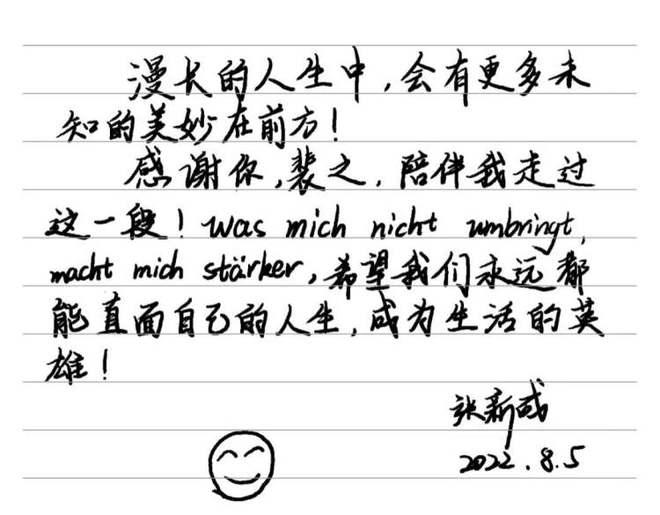 漫长的人生中,会有更多未
知的美妙在前方!
感谢你,裴之,陪伴我走过
这一段! was mich nicht umbringt,
macht mich stärker,希望我们永远都
能直面自己的人生,成为生活的英
雄!
张新成
2022.8.5